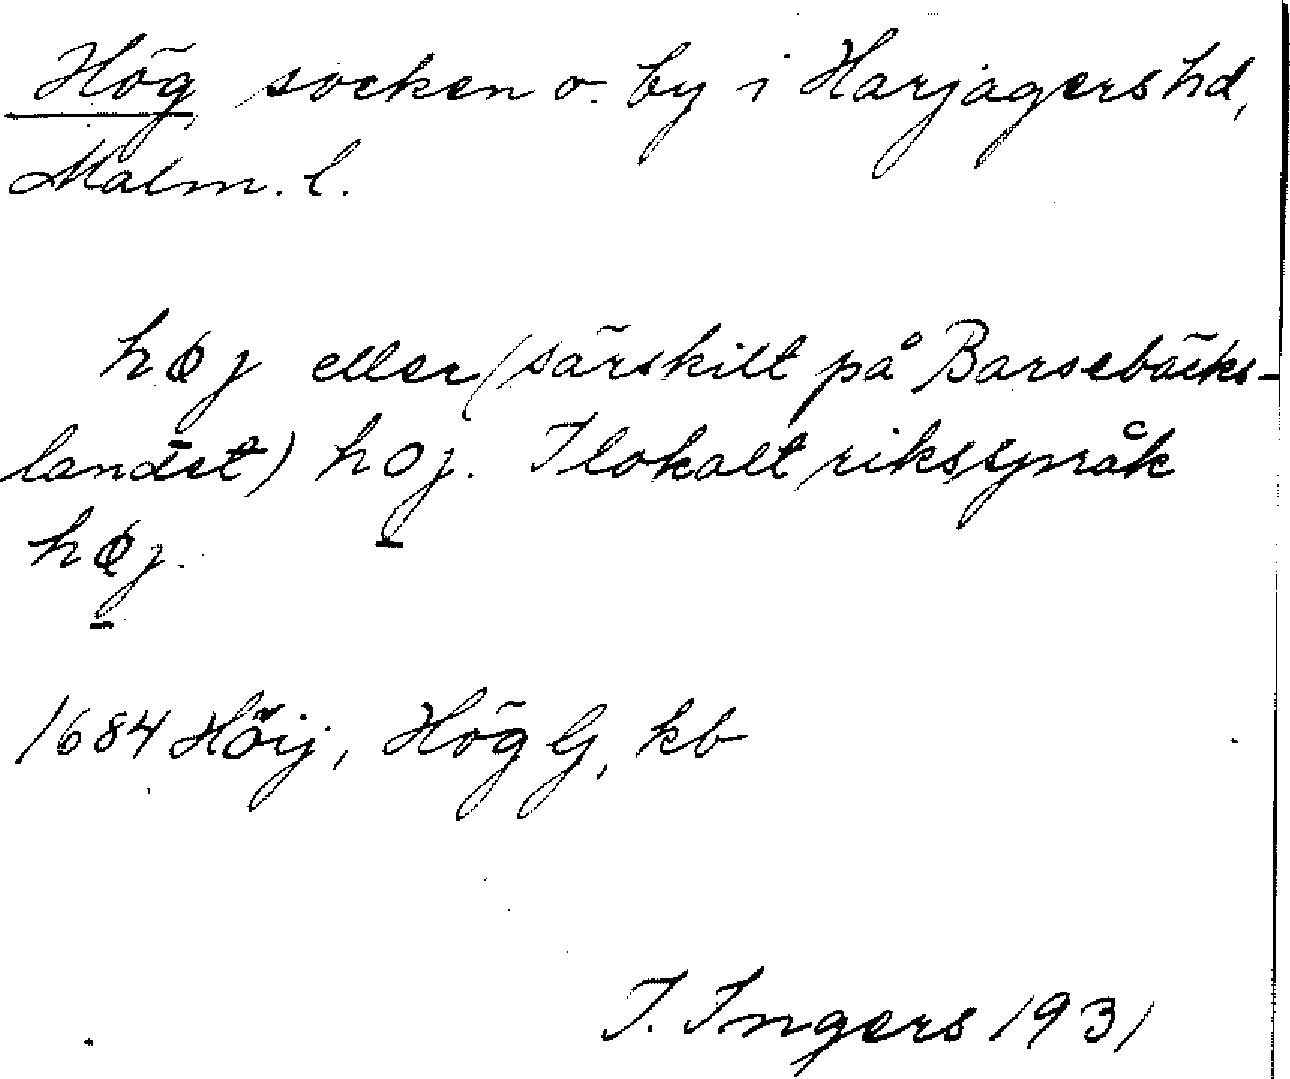 Hög socken o. by i Harjagers hd,
Malm. l.
høj eller (särskilt på Barsebäcks-
landet) hoj. I lokalt riksspråk
høj.
1684 Höij, Hög G, kb
I. Ingers 1931